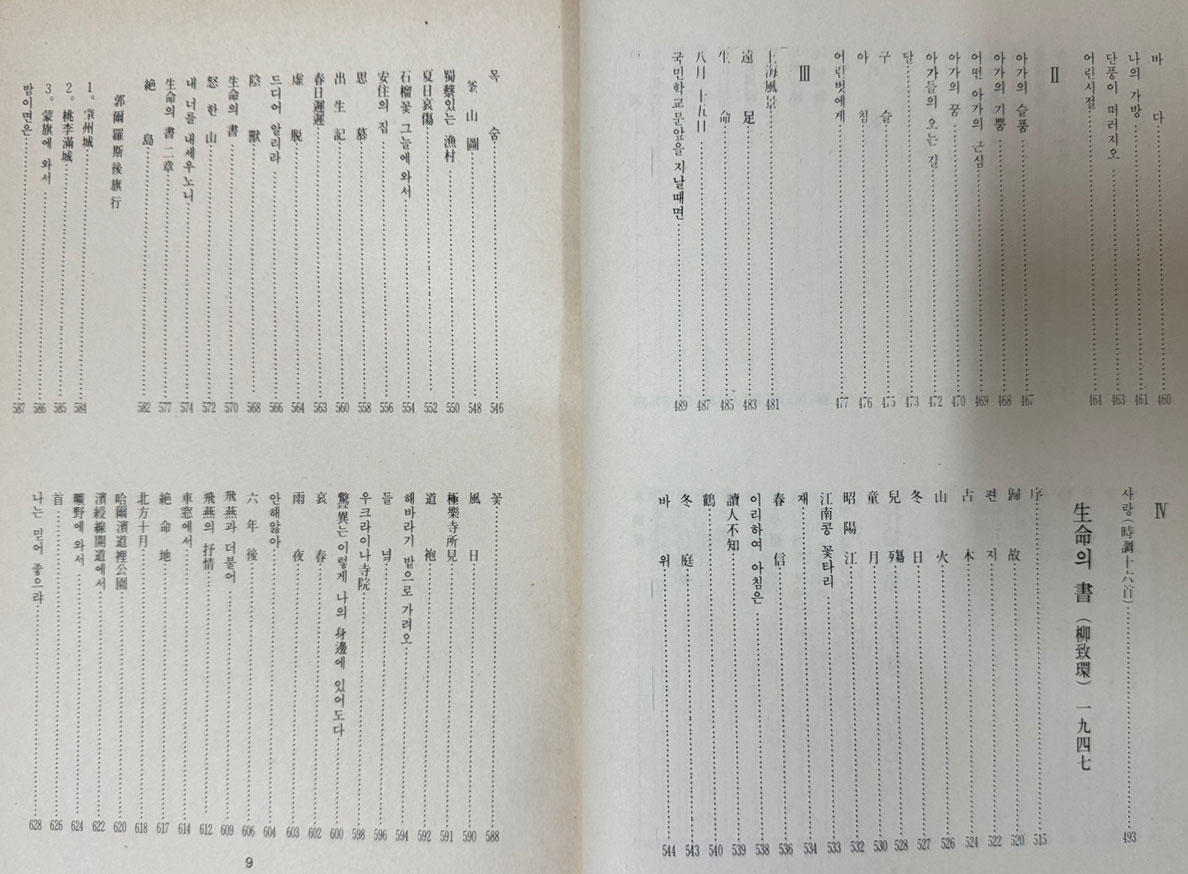 바다 460
나의 가방 461
단풍이 떠러지오 463
어린시절 464
II
아가의 슬품 467
아가의 기쁨 468
어떤 아가의 근심 469
아가의 꿈 470
아가들의 오는 길 472
달 473
구슬 475
아침 476
어린벗에게 477
III
上海風景 481
遠足 483
生命 485
八月十五日 487
국민학교문앞을 지날때면 489
IV
사랑 (時調十六首) 493
生命의 書 (柳致環) 一九四七
序 515
歸故 520
편지 522
古木 524
山火 526
冬日 527
兒殤 528
童月 530
昭陽江 532
江南콩 꽃타리 533
재 534
春信 536
이리하여 아침은 538
讀人不知 539
鶴 540
冬庭 543
바위 544
목숨 546
釜山圖 548
蜀葵있는 漁村 550
夏日哀傷 552
石榴꽃 그늘에 와서 554
安住의 집 556
思慕 558
出生記 560
春日遲遲 563
虛脫 564
드디어 알리라 566
陰獸 568
生命의 書 570
怒한山 572
내 너를 내세우노니 574
生命의 書 二章 577
絶島 582
郭爾羅斯後旗行
1。肇州城 584
2。桃李滿城 585
3。蒙旗에 와서 586
밤이면은 587
꽃 588
風日 590
極樂寺所見 591
道袍 592
해바라기 밭으로 가려오 594
들녘 596
우크라이나寺院 598
驚異는 이렇게 나의 身邊에 있어도다 600
哀春 602
雨夜 603
안해앓아 604
六年後 606
飛燕과 더불어 609
飛燕의 抒情 612
車窓에서 614
絶命地 617
北方十月 618
哈爾濱道裡公園 620
濱綏線開道에서 622
曠野에 와서 624
首 626
나는 믿어 좋으랴 628
9